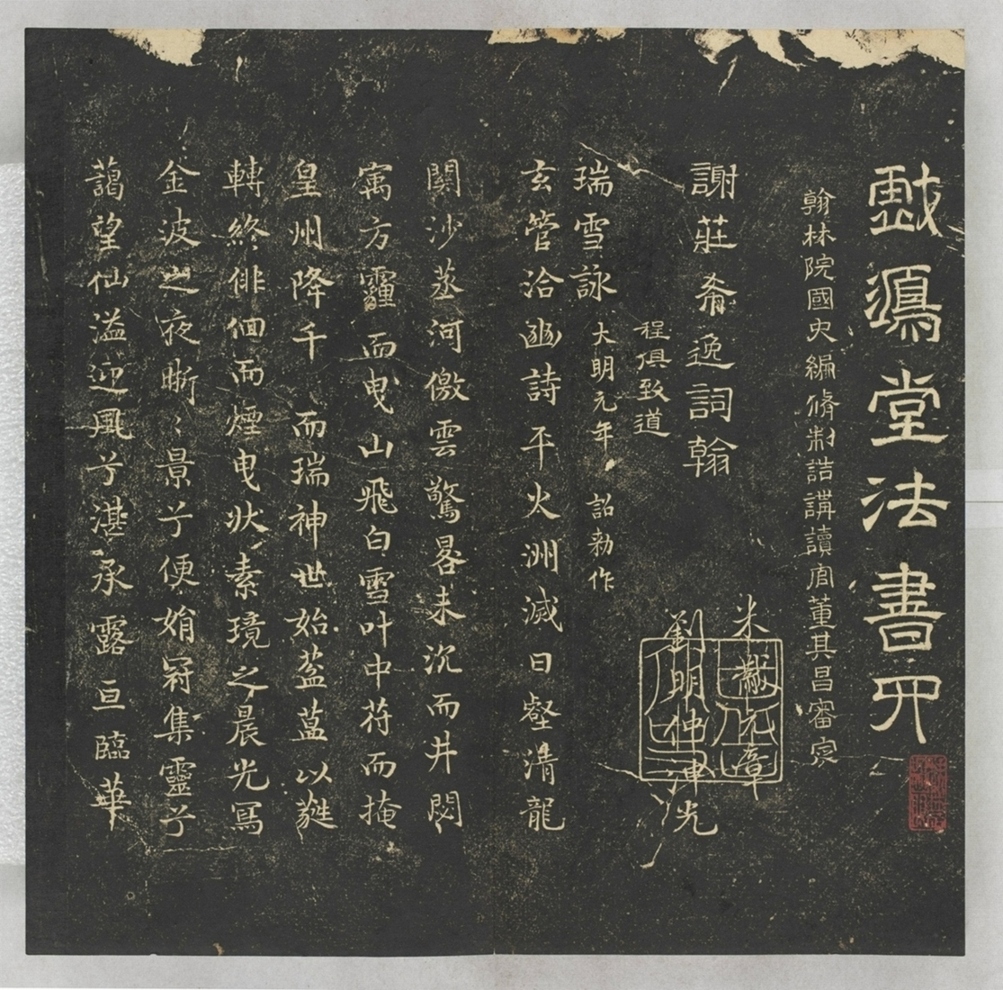 戲鴻堂法書四
翰林院國史編脩制誥講讀官董其昌審定
謝莊希逸詞翰
程俱致道
米黻元章
劉明仲
瑞雪詠 大明元年 詔勑作
玄管洽幽詩平火洲滅日壑清龍
關沙蒸河儆雲驚晷未沉而井閟
寓方霾而曳山飛白雪叶中苻而掩
皇州降千 而瑞神世始葢蒀以蕤
轉終俳佪而煙曳狀素境之晨光寫
金波之夜晰〻景兮便娟冠集靈兮
藹望仙溢迎風兮湛承露亘臨華